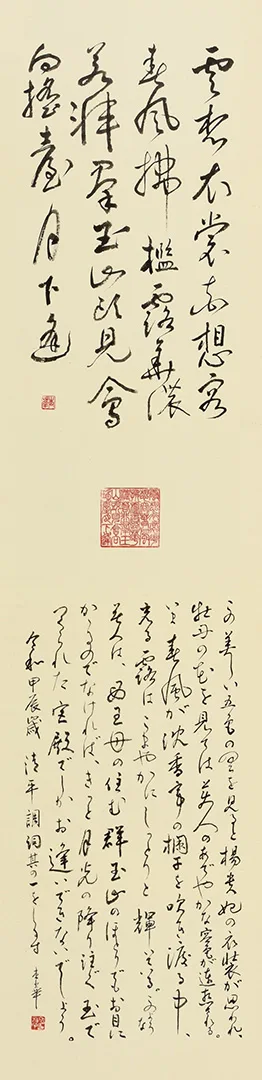 雲想衣裳花想容
春風拂檻露華濃
若非群玉山頭見會
向瑤臺月下逢
この美しい五色の雲を見ると楊貴妃の衣装が思われ、
牡丹の花を見ては美人のあでやかな容色が連想される。
いま春風が沈香亭の欄干を吹き渡る中、
光る露はこまやかにしっとりと輝いている。このような
美人は、西王母の住む群玉山のほとりでお目に
かかるのでなければ、きっと月光の降り注ぐ玉で
つくられた宮殿でしかお逢いできないでしょう。
令和甲辰歳 清平調詞其の一をしるす